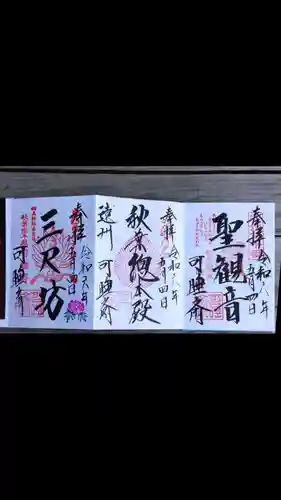 奉拝
令和六年
五月四日
聖観音
可睡斎
奉拝
令和六年
五月四日
秋葉総本殿
遠州
可睡斎
奉拝
令和六年
三尺坊
可睡斎